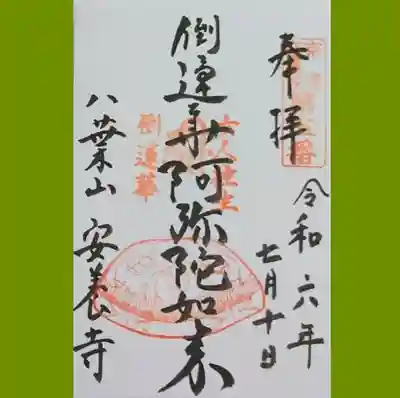 奉拝
令和六年
七月十日
倒蓮華阿弥陀如来
女人往生
倒蓮華
八葉山 安養寺